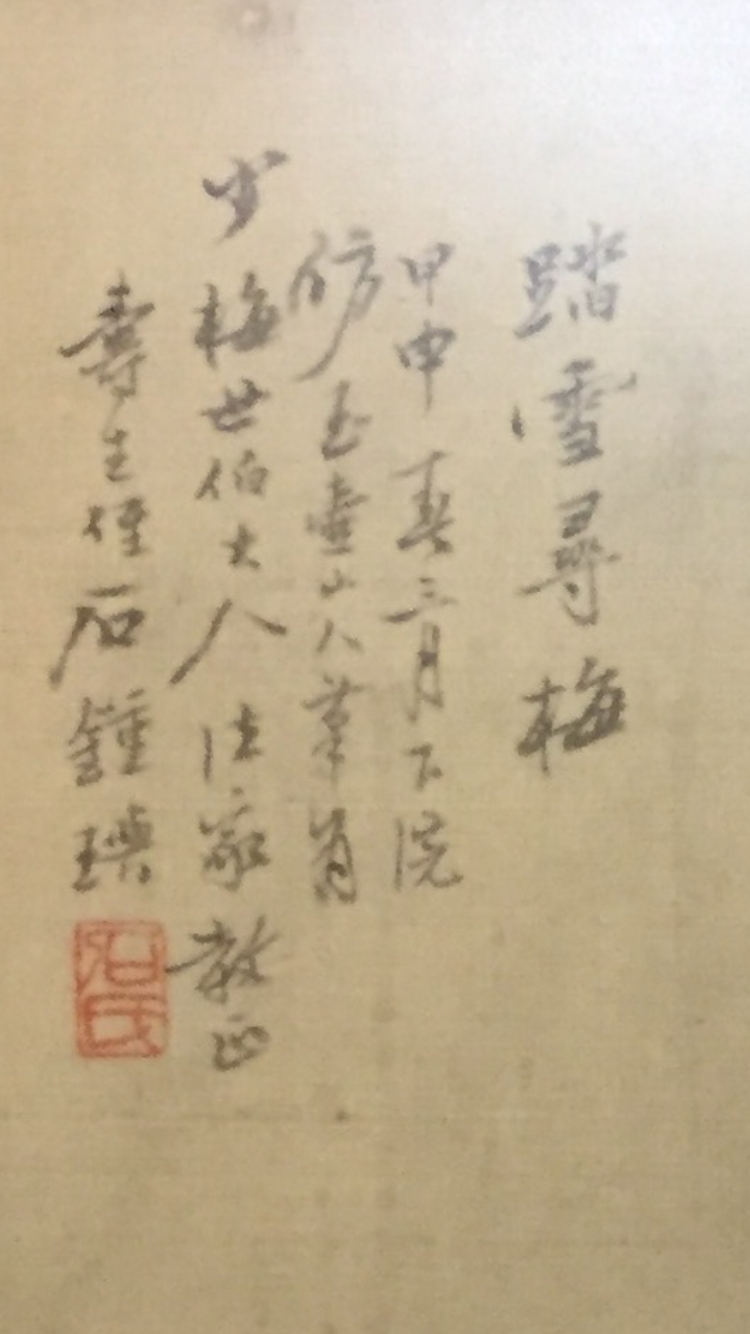 踏雪尋梅
甲申春三月下浣
仿玉壺山人筆肖
少梅世伯大人法家教正
壽生侄石鍾璜
石氏